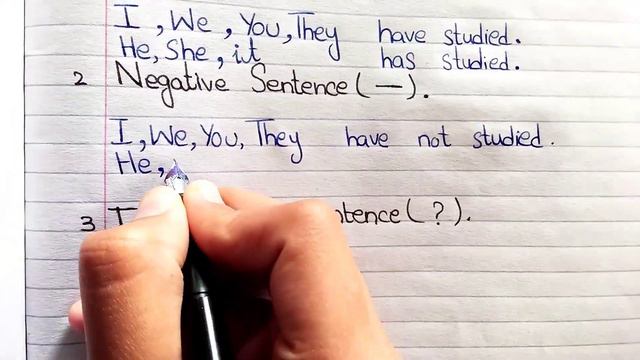 I, We, You, They have studied.
He, She, it has studied.
2 Negative Sentence (—).
I, We, You, They have not studied.
He,
3 I ntence (?).